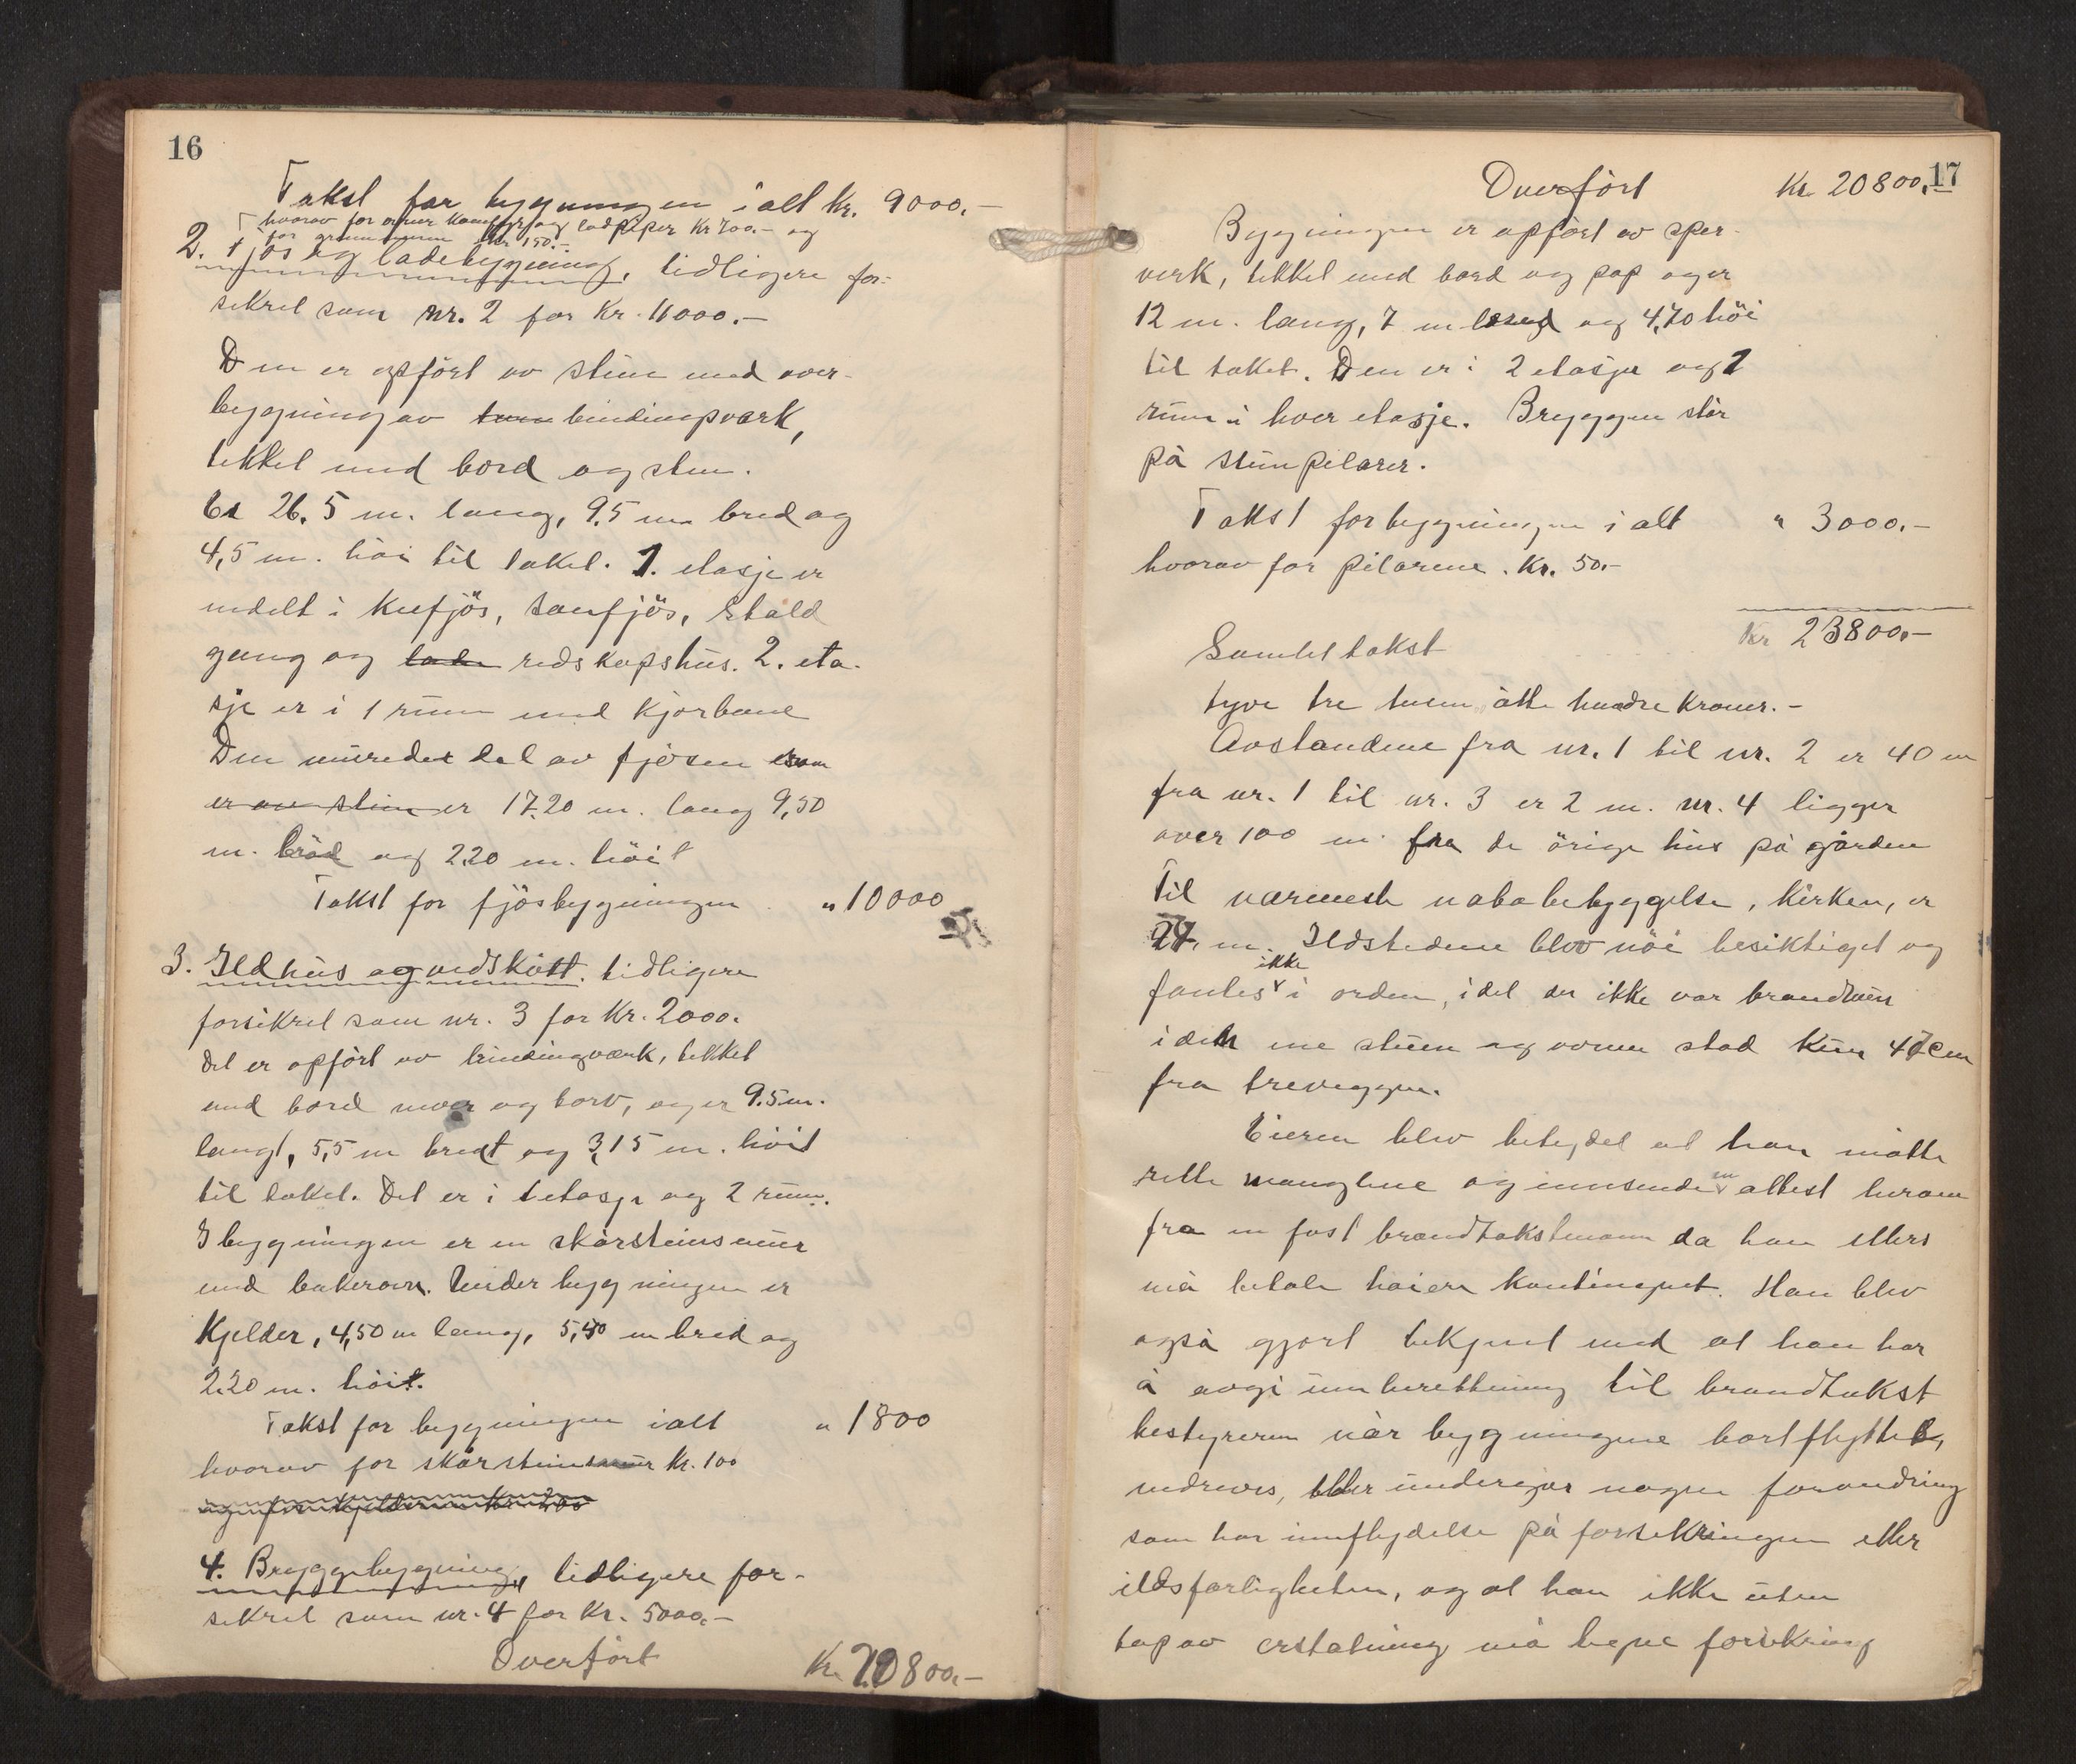 16
Takst for bygningen ialt Kr. 9000.-
hvorav for ovner komfyr og ledpiper Kr 700.- og
for grunnmuren Kr 150.-
2. Fjös og ladebygning, tidligere for-
sikret som nr. 2 for Kr. 11000.-
Den er opfört av sten med over-
bygning av bindingsverk,
tekket med bord og sten.
Er 26.5 m. lang, 9.5 m bred og
4,5 m. höi til taket. 1. etasje er
indelt i kufjös, saufjös, stald
gang og lade redskapshus. 2. eta-
sje er i 1 rum med kjörbane
Den murede del av fjösen som
er av sten er 17.20 m. lang 9,50
m. bred og 2.20 m. höit
Takst for fjösbygningen " 10000
3. Ildhus og vedskott. tidligere
forsikret som nr. 3 for Kr. 2000.
Det er opfört av bindingverk, tekket
med bord never og torv, og er 9.5 m.
langt, 5,5 m bredt og 3,15 m. höit
til taket. Det er i 1 etasje og 2 rum.
I bygningen er en skorsteinsmur
med bakerovn. Under bygningen er
Kjelder, 4,50 m lang, 5,40 m bred og
2.20 m. höit.
Takst for bygningen ialt " 1800
hvorav for skorsteinsmur Kr. 100
og for kjelderen Kr. 200
4. Bryggebygning, tidligere for-
sikret som nr. 4 for Kr. 5000.-
Overfört Kr. 20800.-
17
Overfört Kr. 20800.-
Bygningen er opfört av sper-
verk, tekket med bord og pap og er
12 m. lang, 7 m bred og 4,70 höi
til taket. Den er i 2 etasje og 1
rum i hver etasje. Bryggen står
på stenpilarer.
Takst for bygningen i alt " 3000.-
hvorav for pilarene. Kr. 50.-
Samlet takst Kr 23800.-
tyve tre tusen åtte hundre kroner.-
Avstandene fra nr. 1 til nr. 2 er 40 m
fra nr. 1 til nr. 3 er 2 m. nr. 4 ligger
over 100 m. fra de örige hus på gården
Til nærmeste nabobebyggelse, kirken, er
m. Ildstedene blev nöie besiktiget og
fantes ikke i orden, idet der ikke var brandmur
i den ene stuen og ovnen stod kun 47 cm
fra treveggen.
Eieren blev betydet at han måtte
rette manglene og innsende en attest herom
fra en fast brandtakstmann da han ellers
må betale höiere kontingent. Han blev
også gjort bekjent med at han har
å avgi innberettning til brandtakst
bestyreren når bygningene bortflyttes,
nedrives, eller undergår nogen forandring
som har innflydelse på forsikringen eller
ildsfarligheten, og at han ikke uten
tap av erstatning må tegne forsikring